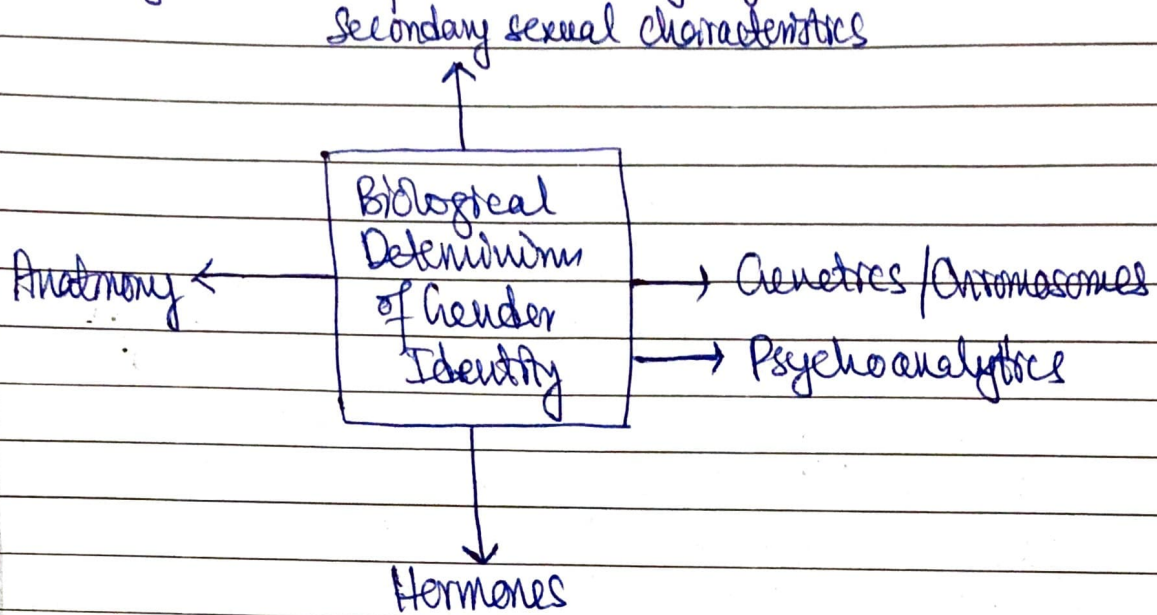 Secondary sexual characteristics
Biological
Determinism
of Gender
Identity
Anatmony
Genetics / Chromosomes
Psychoanalytics
Hormones